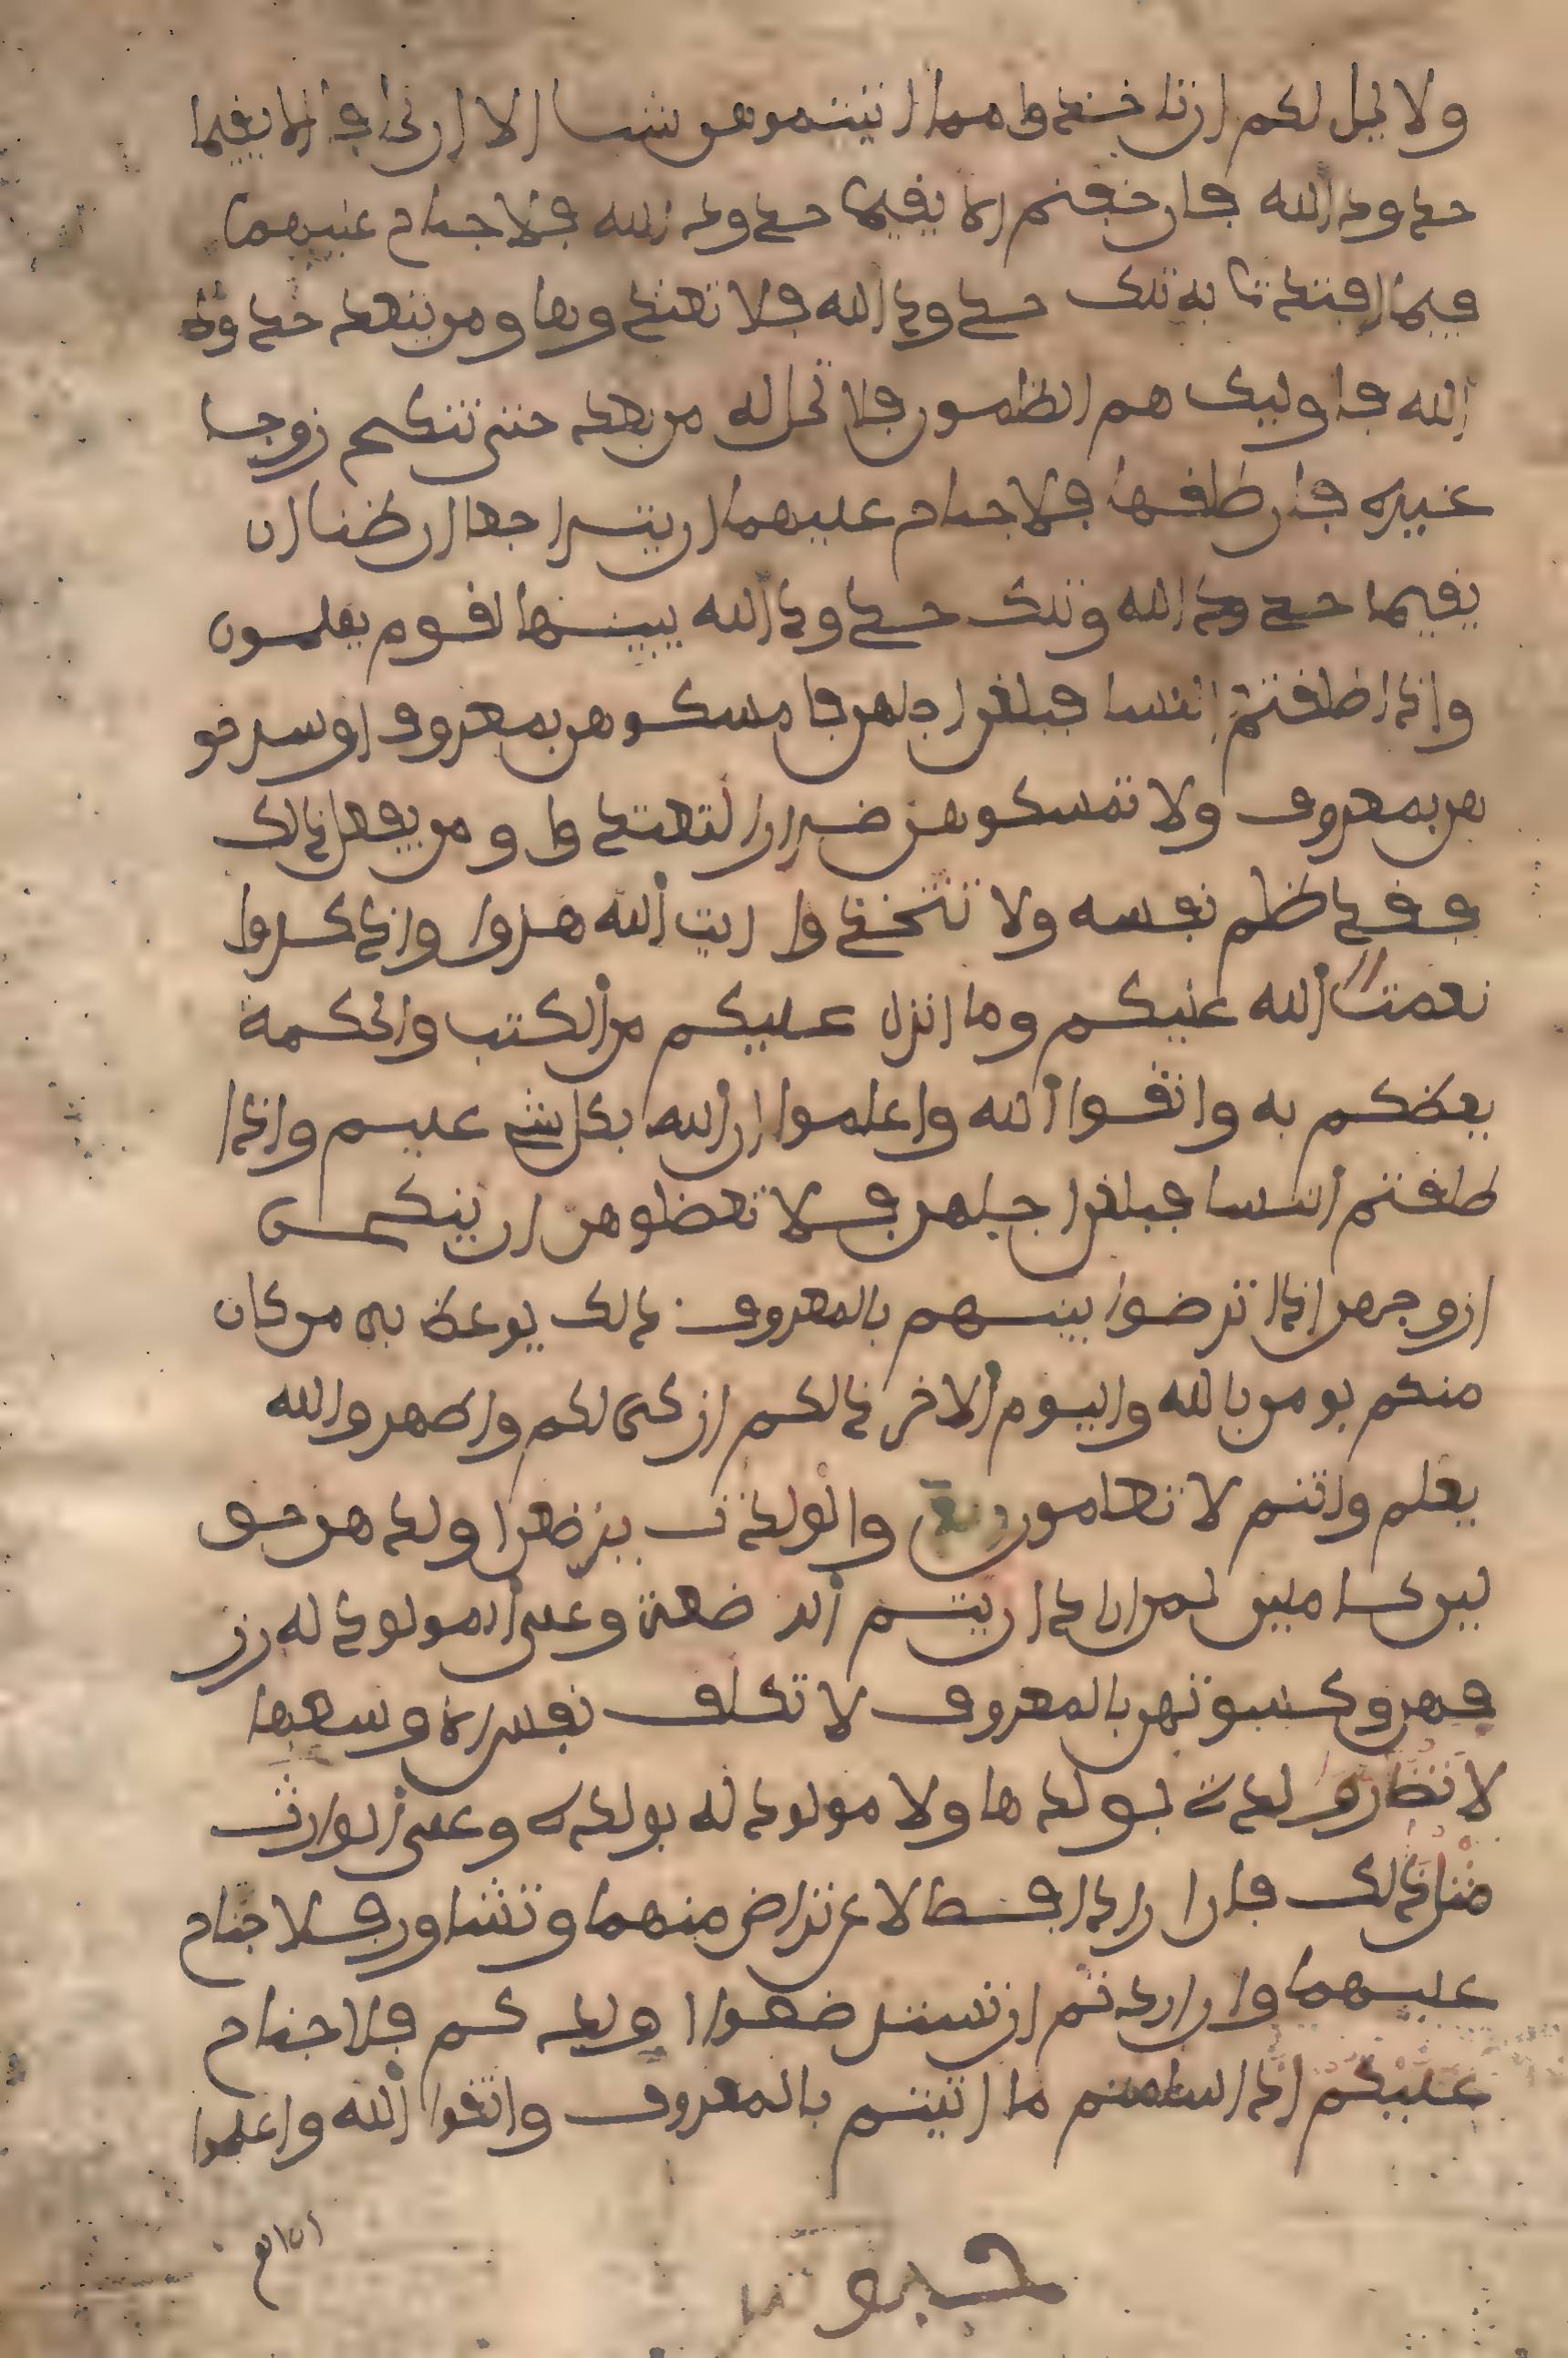 ولا يحل لكم ان تاخذوا مما اتيتموهن شيا الا ان يخافا الا يفيما
حدود الله فان خفتم الا يفيما حدود الله فلا جناح عليهما
فيما افتدت به تلك حدود الله فلا تعتدوها ومن يتعد حدود
الله فاوليك هم الظلمون فلا تحل له من بعد حتى تنكح زوجا
غيره فان طلفها فلا جناح عليهما ان يتراجعا ان ظنا ان
يفيما حدود الله وتلك حدود الله يبينها لفوم يعلمون
واذا طلفتم النسا فبلغن اجلهن فامسكوهن بمعروف او سرحو
هن بمعروف ولا تمسكوهن ضرارا لتعتدوا ومن يفعل ذالك
ففد ظلم نفسه ولا تتخذوا ايت الله هزوا واذكروا
نعمت الله عليكم وما انزل عليكم من الكتب والحكمة
يعظكم به واتفوا الله واعلموا ان الله بكل شے عليم واذا
طلفتم النسا فبلغن اجلهن فلا تعضلوهن ان ينكحن
ازوجهن اذا ترضوا بينهم بالمعروف ذالك يوعظ به من كان
منكم يومن بالله واليوم الاخر ذالكم ازكى لكم واطهر والله
يعلم وانتم لا تعلمون والولدت يرضعن اولدهن حو
لين كاملين لمن اراد ان يتم الرضعة وعلى المولود له رز
فهن وكسوتهن بالمعروف لا تكلف نفس الا وسعها
لا تضار ولدة بولدها ولا مولود له بولده وعلى الوارث
مثل ذالك فان ارادا فصالا عن تراض منهما وتشاور فلا جناح
عليهما وان اردتم ان تسترضعوا اولدكم فلا جناح
عليكم اذا سلمتم ما اتيتم بالمعروف واتفوا الله واعلموا